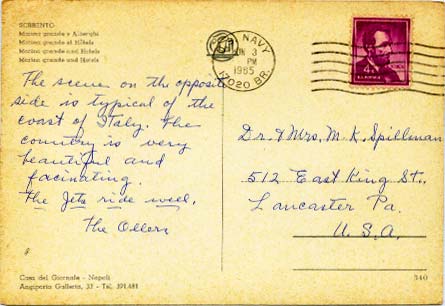 SORRENTO
Marina grande e Alberghi
Marina grande et Hôtels
Marina grande and Hotels
Marina grande und Hotels
U. S. NAVY
JUN 3
PM
1965
17020 BR.
4¢
The scene on the opposite
side is typical of the
coast of Italy. The
country is very
beautiful and
facinating.
The Jets ride well.
The Ollers
Dr. & Mrs. M. K. Spillman
512 East King St.,
Lancaster Pa.
U. S. A.
Casa del Giornale - Napoli
Angiporto Galleria, 33 - Tel. 391.481
340